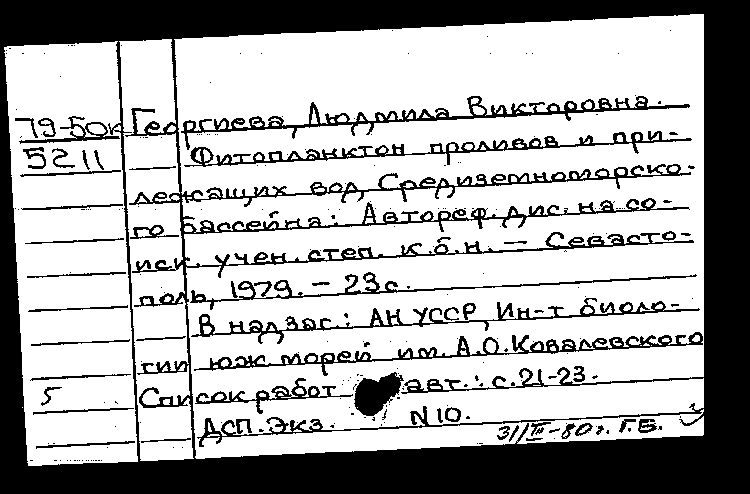 79-50к Георгиева, Людмила Викторовна.
5211 Фитопланктон проливов и при-
лежащих вод, Средиземноморско-
го бассейна: Автореф. дис. на со-
иск. учен. степ. к.б.н. — Севасто-
поль, 1979. — 23с.
В надзаг.: АН УССР, Ин-т биоло-
гии юж. морей им. А.О. Ковалевского
5 Список работ авт.: с. 21-23.
ДСП. Экз. N 10.
31/III-80г. Г.Б.